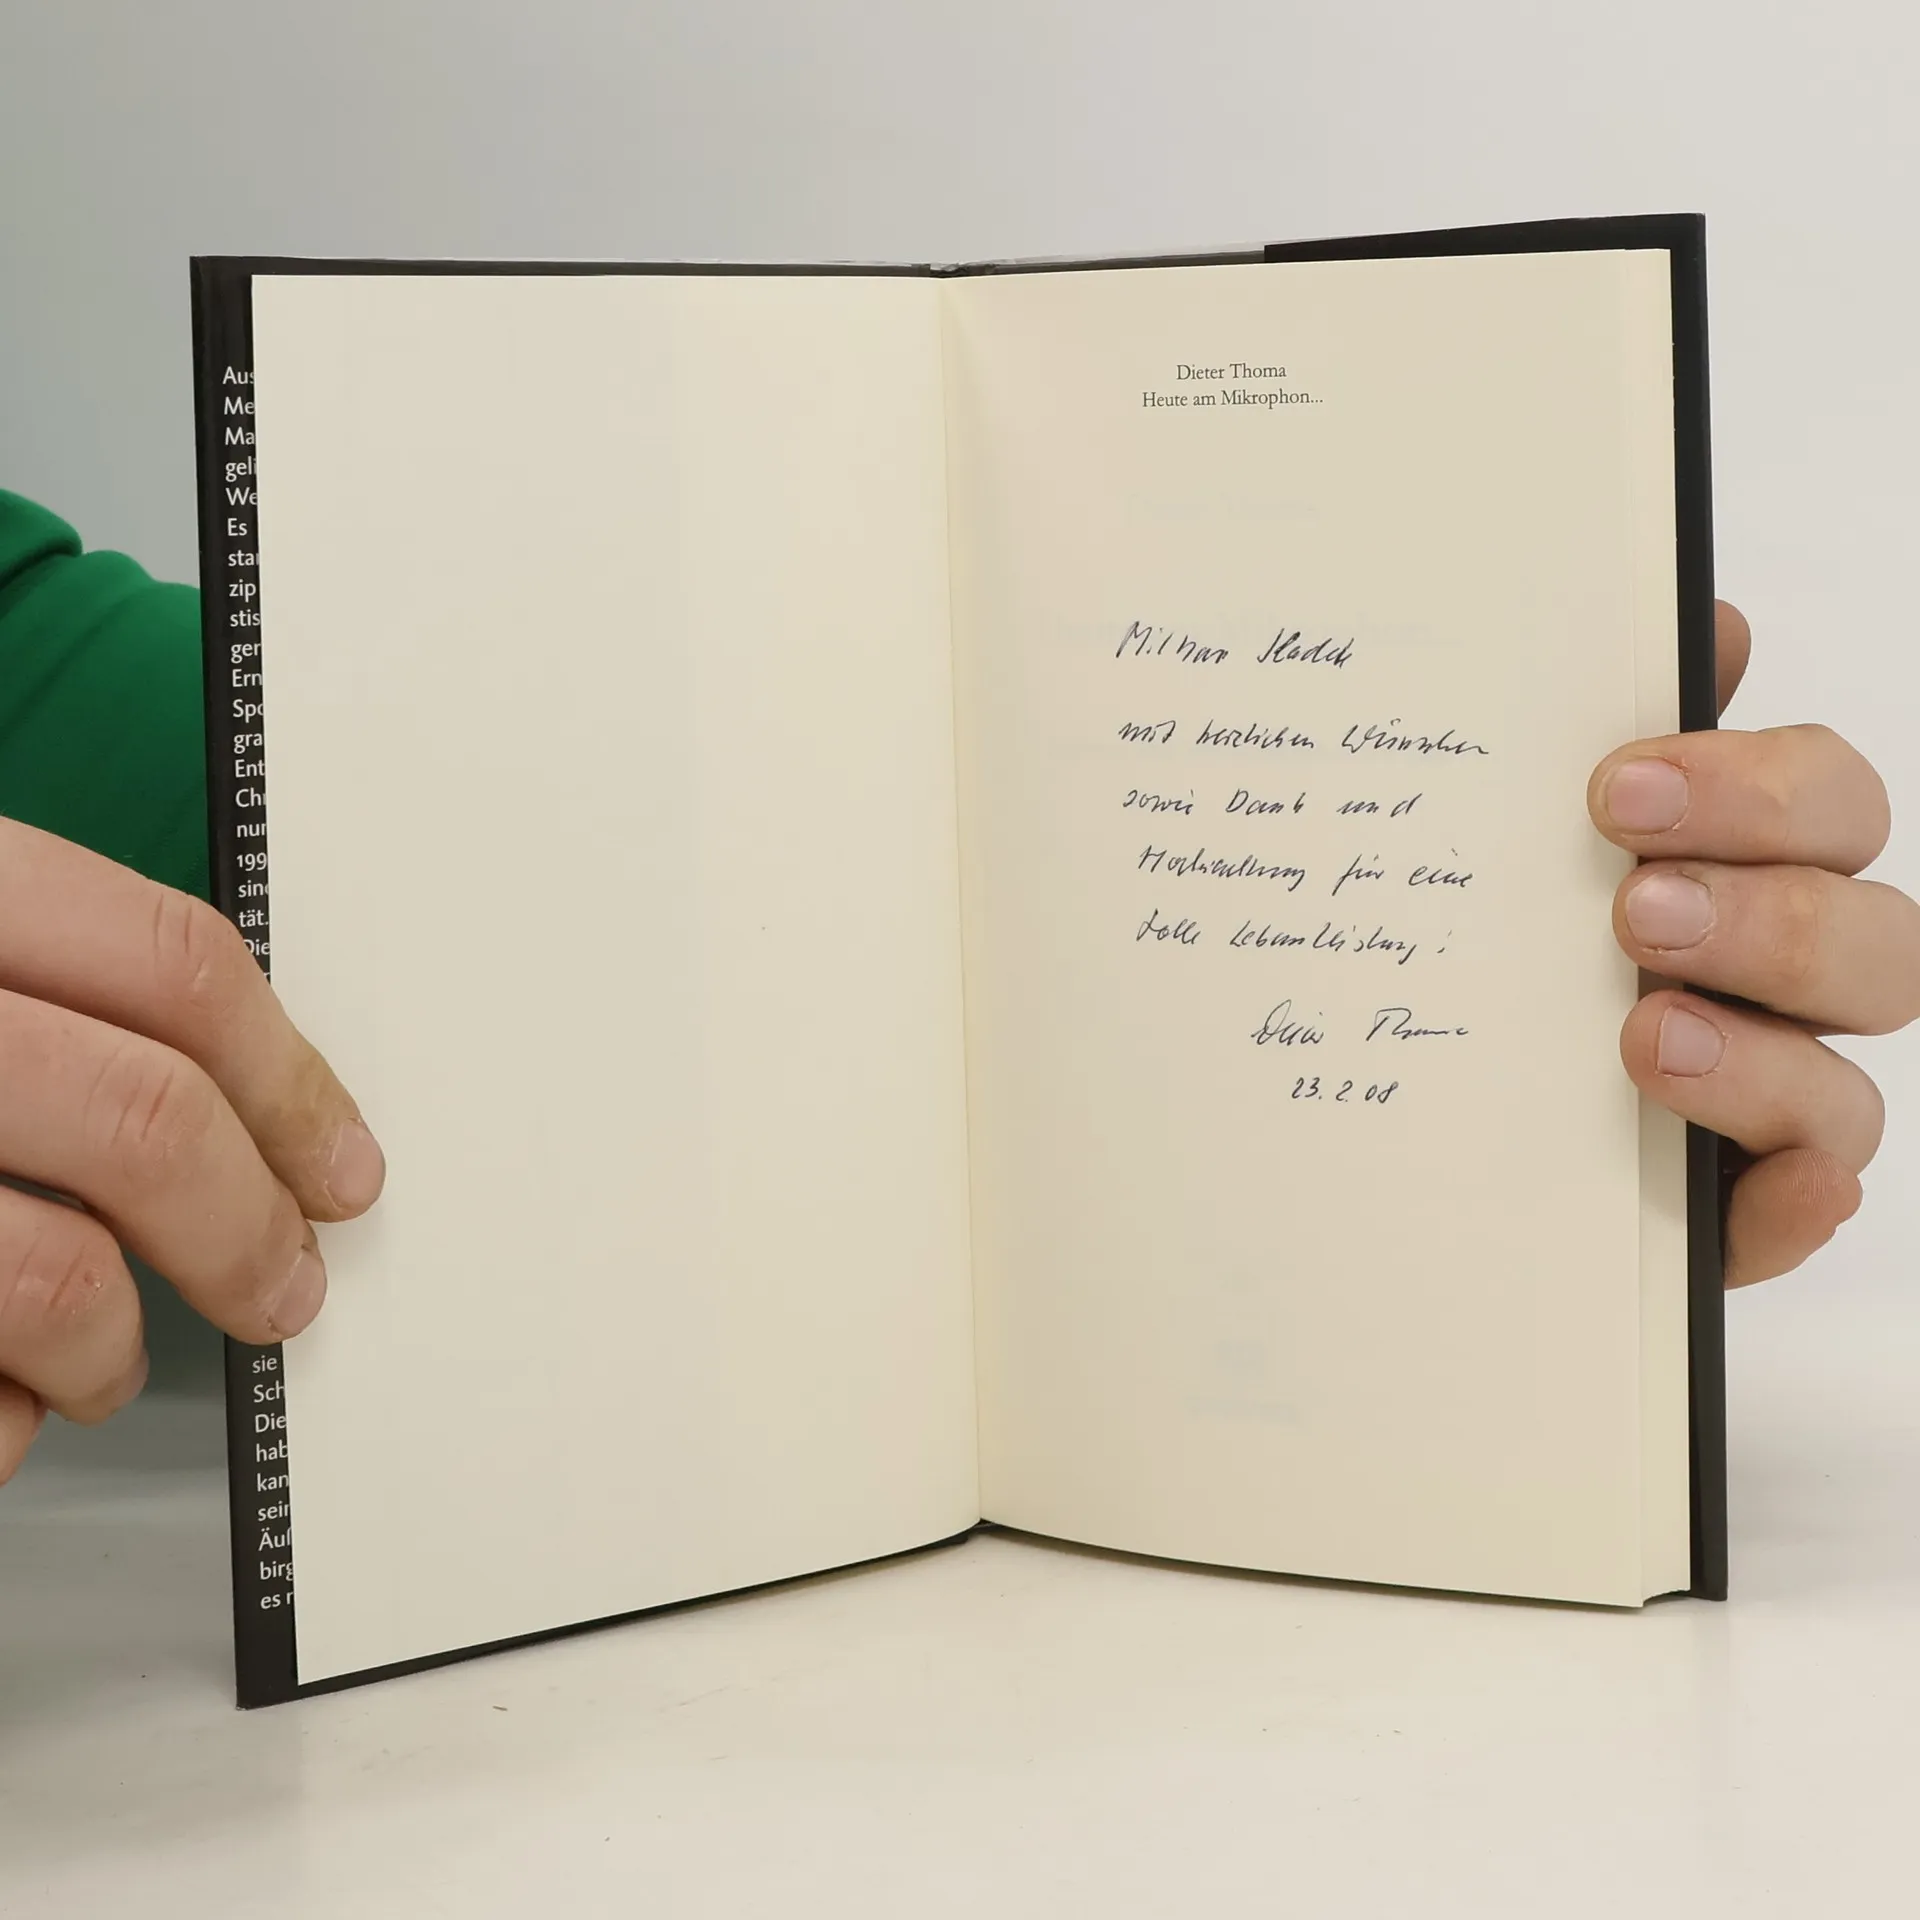 Aus
Me
Ma
geli
We
Es
star
zip
stis
ger
Ern
Spo
gra
Ent
Chr
nur
199
sind
tät.
Die
sie
Sch
Die
hab
kan
sein
Äuß
birg
es n
Dieter Thoma
Heute am Mikrophon...
mit herzlichen Wünschen
sowie Dank und
Hochachtung für eine
tolle Lebensleistung!
Dieter Thoma
23.2.08